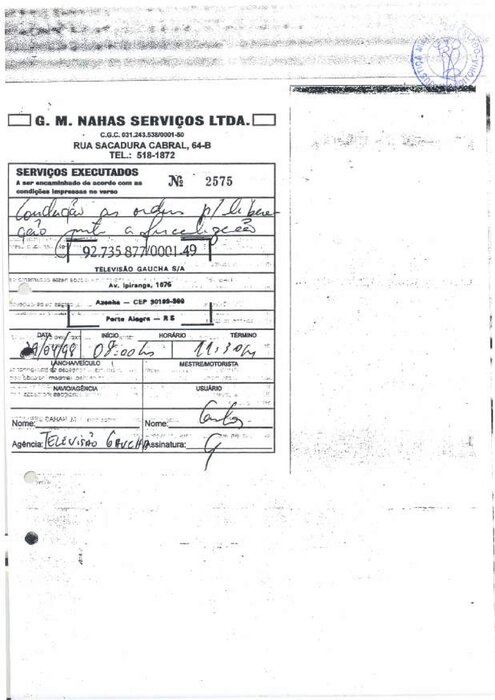 G. M. NAHAS SERVIÇOS LTDA.
C.G.C. 031.243.538/0001-50
RUA SACADURA CABRAL, 64-B
TEL.: 518-1872
SERVIÇOS EXECUTADOS
A ser encaminhado de acordo com as
condições impressas no verso
Nº 2575
Condução as ordens p/ libera-
ção junto a fiscalização
92.735 877/0001-49
TELEVISÃO GAUCHA S/A
Av. Ipiranga, 1075
Azenha — CEP
Porto Alegre — RS
DATA INÍCIO HORÁRIO TÉRMINO
/04/98 08:00hs 11:30hs
LANCHA/VEÍCULO MESTRE/MOTORISTA
NAVIO/AGÊNCIA USUÁRIO
Nome: Nome: Carlos
Agência: TELEVISÃO GAUCHA Assinatura: